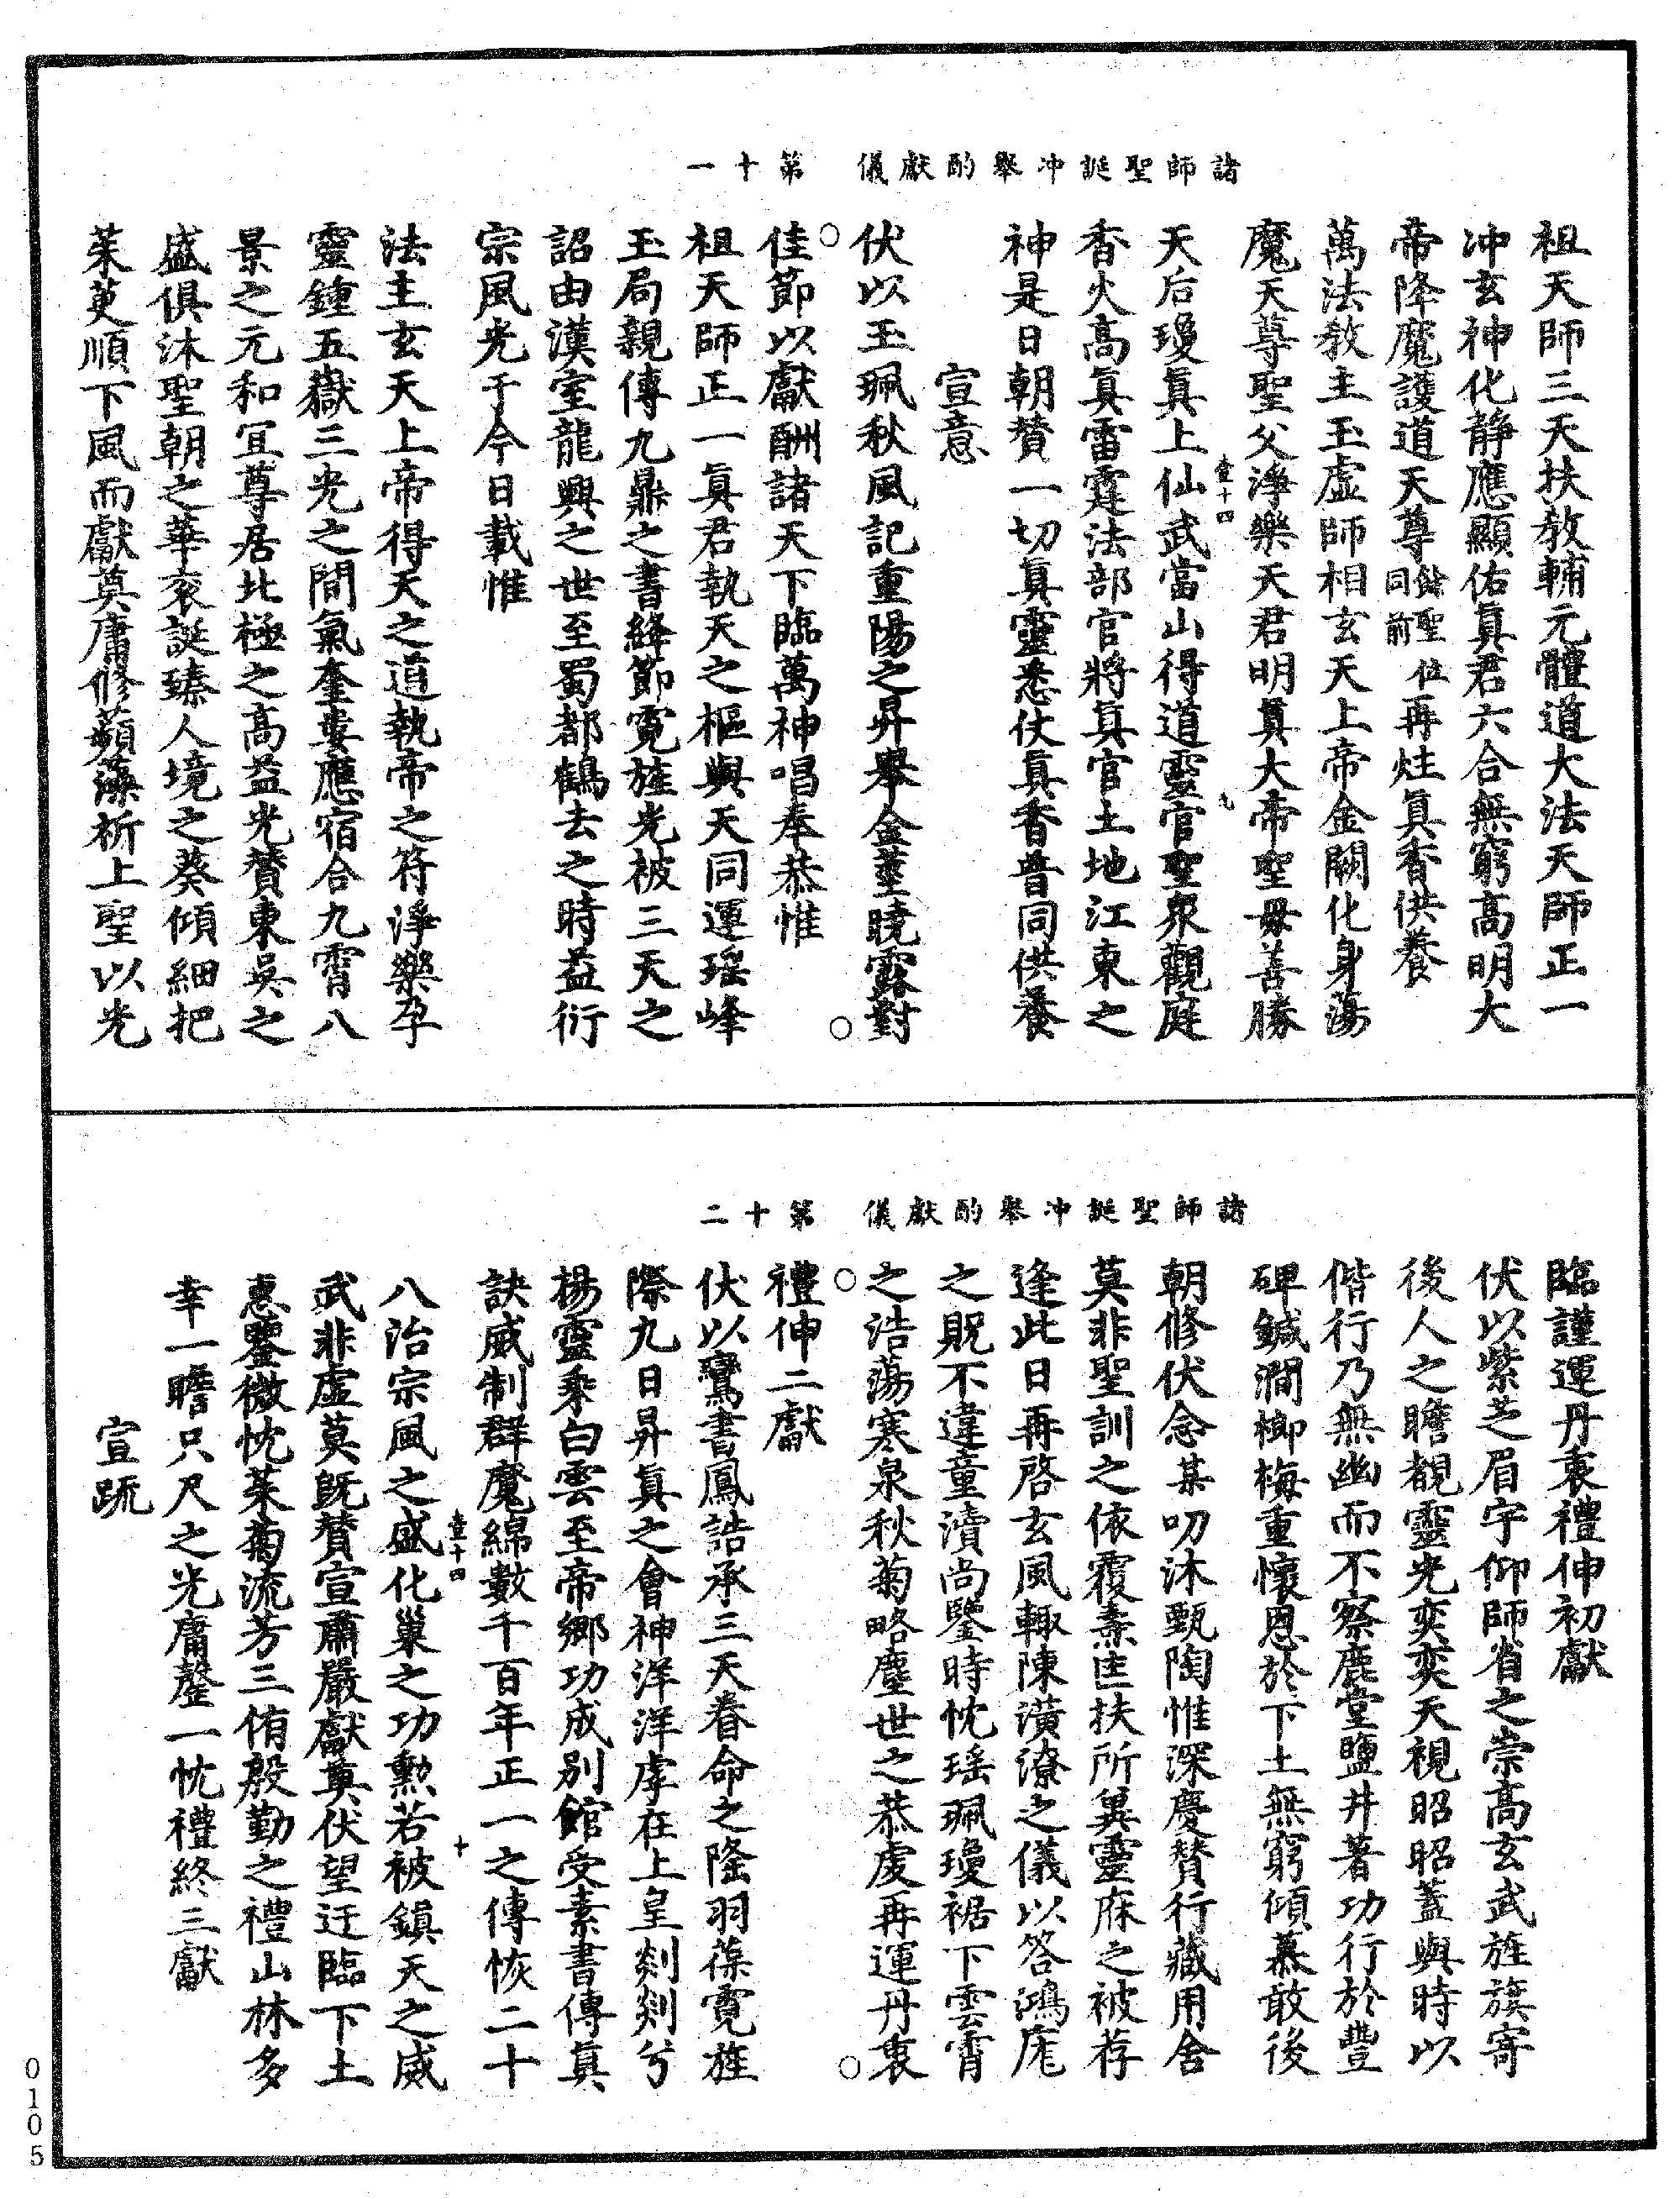 諸師聖誕冲舉酌獻儀　第十一
祖天師三天扶教輔元體道大法天師正一
冲玄神化靜應顯佑眞君六合無窮高明大
帝降魔護道天尊餘聖位同前再炷眞香供養
萬法教主玉虛師相玄天上帝金闕化身蕩
魔天尊聖父淨樂天君明眞大帝聖母善勝
天后瓊眞上仙武當山得道靈官聖衆觀庭
壹十四
九
香火高眞雷霆法部官將眞官土地江東之
神是日朝贊一切眞靈悉仗眞香普同供養
宣意
伏以玉珮秋風記重陽之昇舉金莖曉露對
佳節以獻酬諸天下臨萬神唱奉恭惟
祖天師正一眞君執天之樞與天同運瑶峰
玉局親傳九鼎之書絳節霓旌光被三天之
詔由漢室龍興之世至蜀都鶴去之時益衍
宗風光于今日載惟
法主玄天上帝得天之道執帝之符淨樂孕
靈鍾五嶽三光之間氣奎婁應宿合九霄八
景之元和冝尊居北極之高益光贊東吳之
盛俱沐聖朝之華衮誕臻人境之葵傾細把
茱萸順下風而獻奠庸修蘋藻祈上聖以光
諸師聖誕冲舉酌獻儀　第十二
臨謹運丹衷禮伸初獻
伏以紫芝眉宇仰師省之崇高玄武旌旗寄
後人之瞻覩靈光奕奕天視昭昭蓋與時以
偕行乃無幽而不察鹿堂鹽井著功行於豐
碑鍼澗榔梅重懷恩於下土無窮傾慕敢後
朝修伏念某叨沐甄陶惟深慶贊行藏用舍
莫非聖訓之依覆燾匡扶所兾靈庥之被荐
逢此日再啓玄風輙陳潢潦之儀以答鴻庬
之貺不違童瀆尚鑒時忱瑶珮瓊裾下雲霄
之浩蕩寒泉秋菊略塵世之恭虔再運丹衷
禮伸二獻
伏以鸞書鳳誥承三天眷命之隆羽葆霓旌
際九日昇眞之會神洋洋虖在上皇剡剡兮
揚靈乘白雲至帝鄉功成别館受素書傳眞
訣威制群魔綿數千百年正一之傳恢二十
八治宗風之盛化巢之功勲若被鎮天之威
壹十四
十
武非虛莫旣贊宣肅嚴獻奠伏望迂臨下土
惠鑒微忱茱菊流芳三侑殷勤之禮山林多
幸一瞻只尺之光庸罄一忱禮終三獻
宣䟽
0105